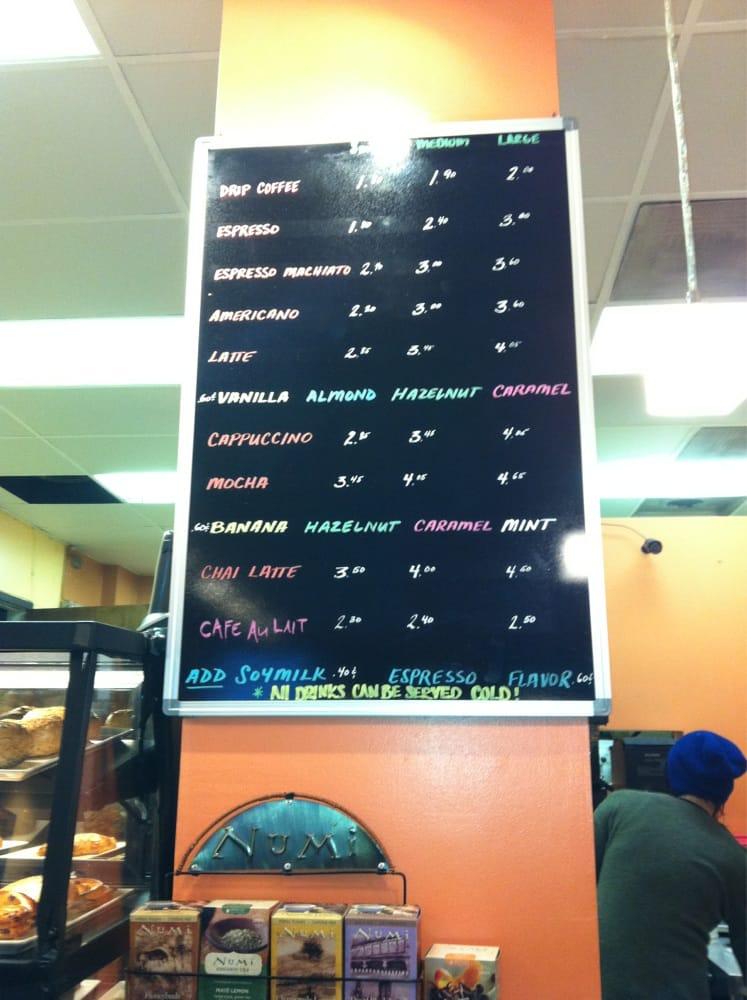 MEDIUM LARGE
DRIP COFFEE 1.90 2.00
ESPRESSO 2.40 3.00
ESPRESSO MACHIATO 3.00 3.60
AMERICANO 2.20 3.00 3.60
LATTE 2.85 3.45 4.05
.60¢ VANILLA ALMOND HAZELNUT CARAMEL
CAPPUCCINO 2.85 3.45 4.05
MOCHA 3.45 4.05 4.65
.60¢ BANANA HAZELNUT CARAMEL MINT
CHAI LATTE 3.50 4.00 4.50
CAFE AU LAIT 2.30 2.40 2.50
ADD SOYMILK .40¢ ESPRESSO FLAVOR .60¢
* All DRINKS CAN BE SERVED COLD!
NUMI
NUMI
NUMI
NUMI
NUMI
ORGANIC TEA
MATÉ LEMON
Honeybush